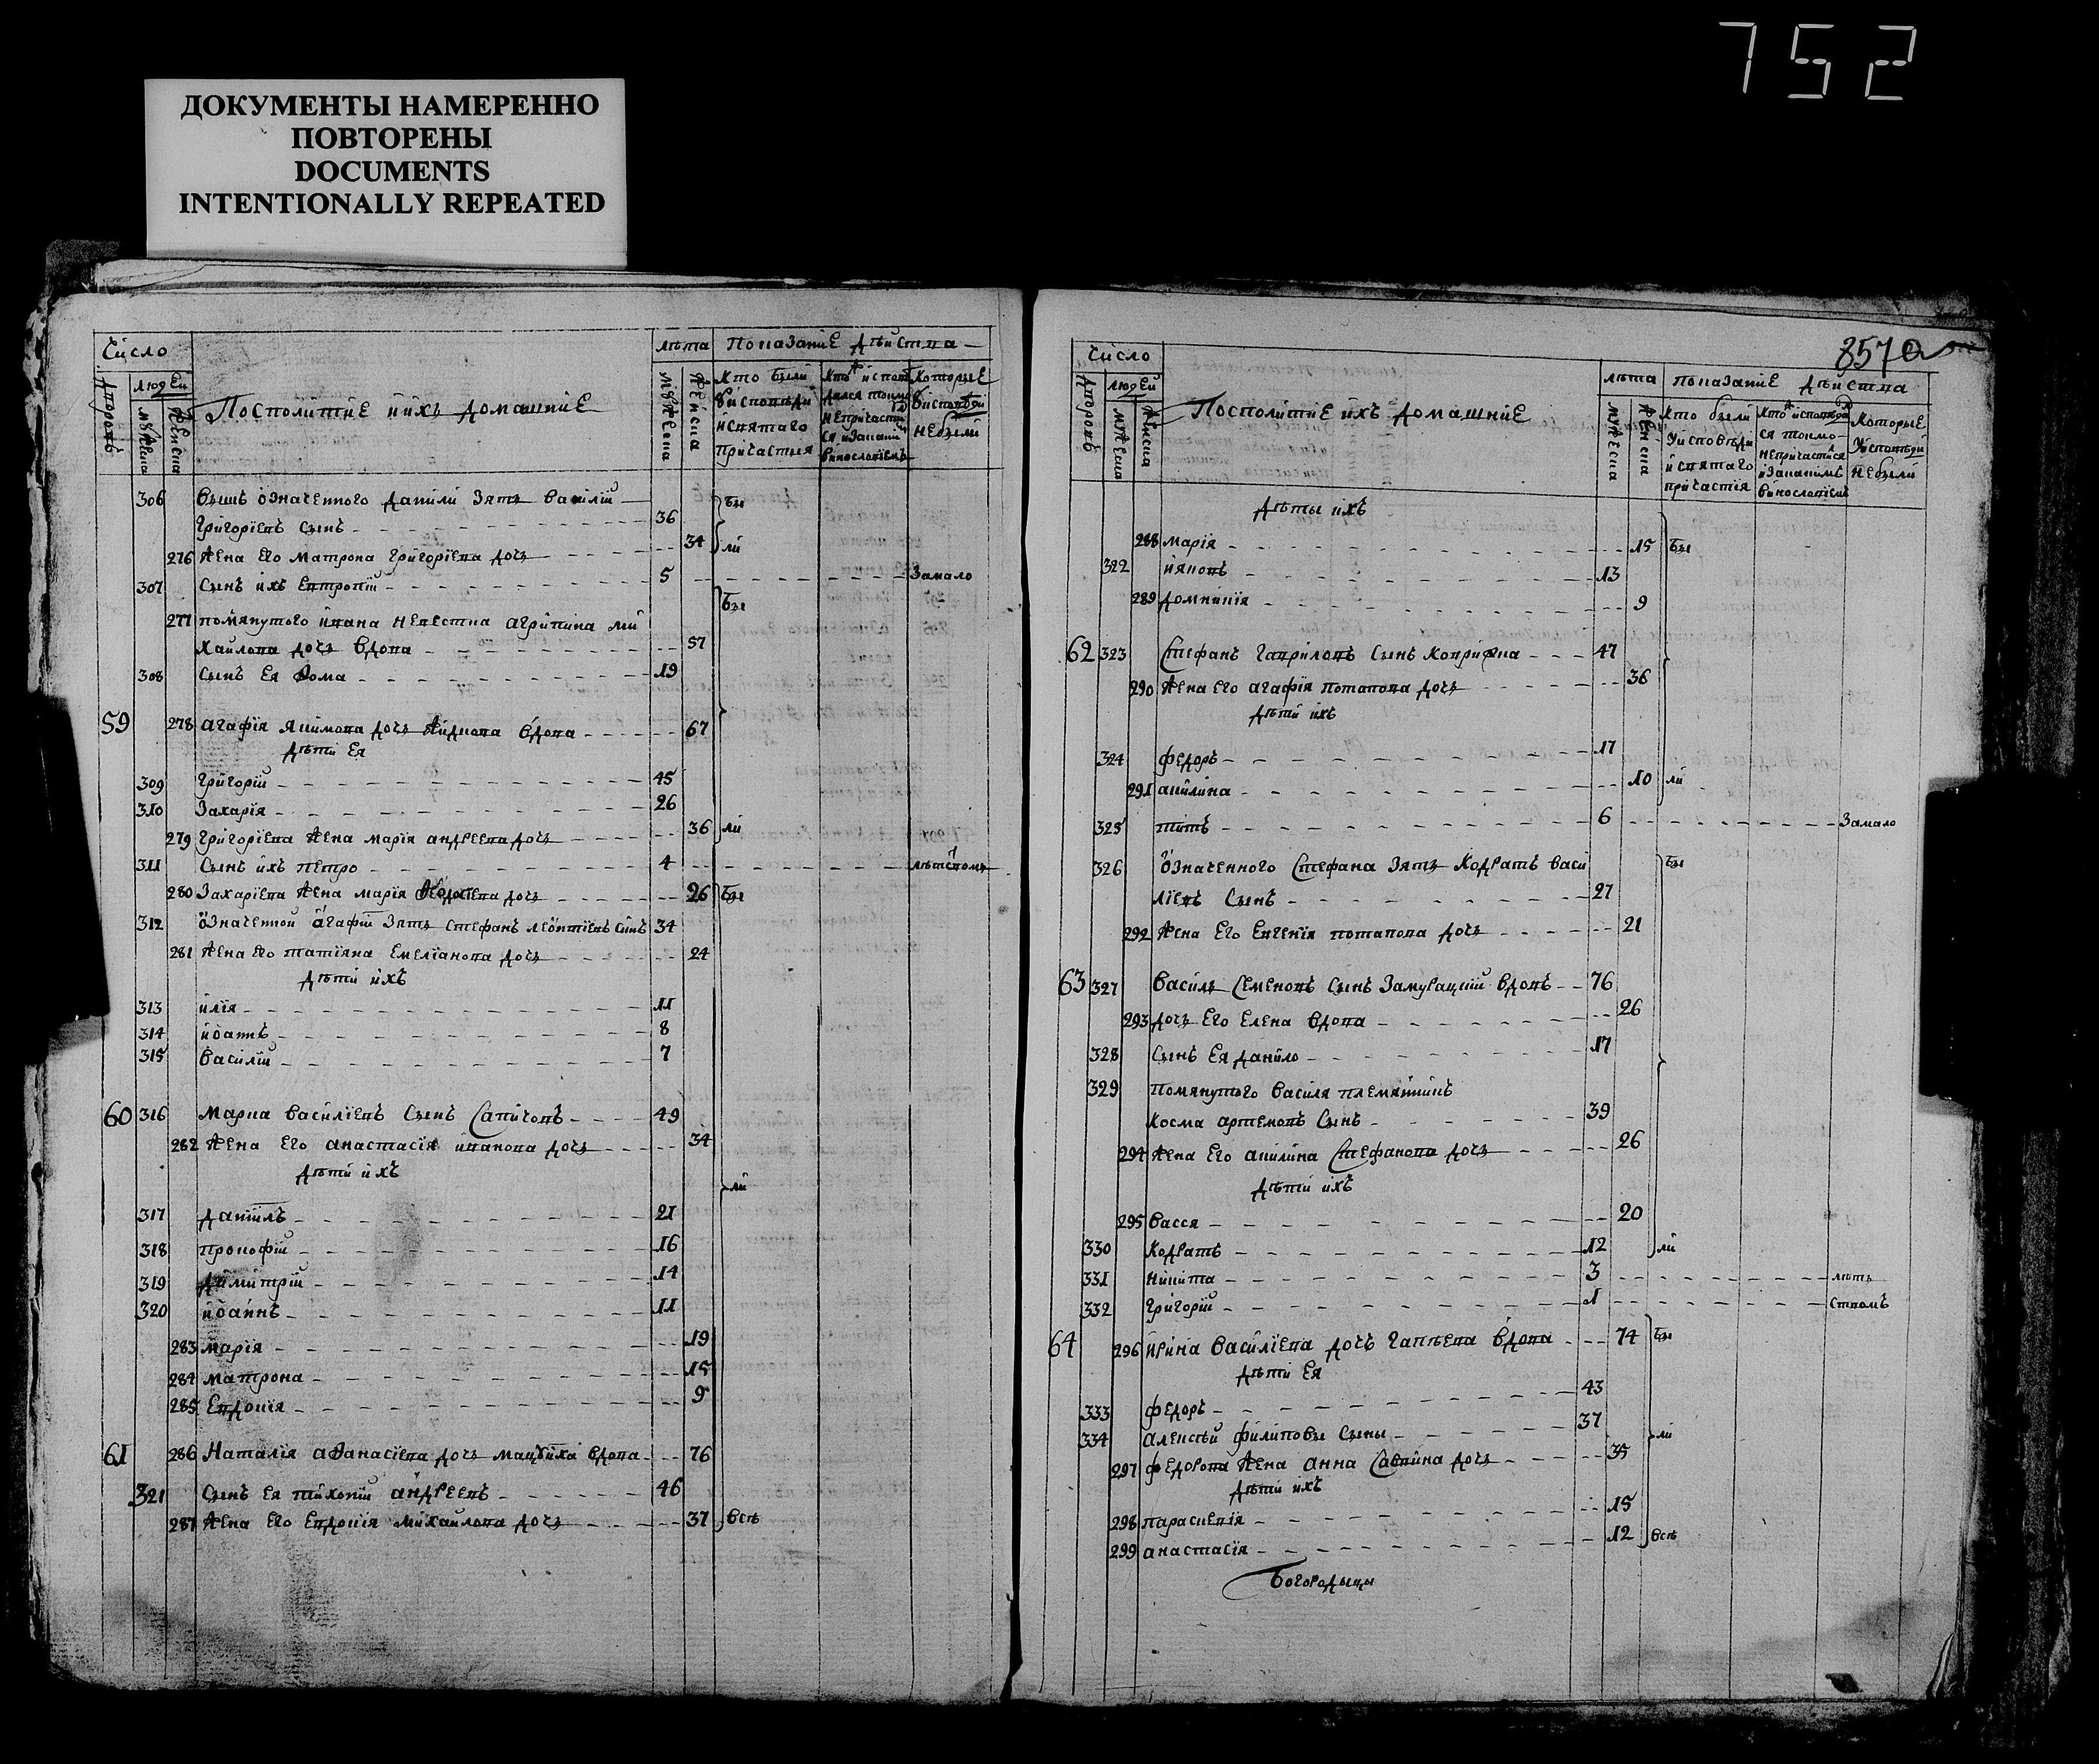 752
ДОКУМЕНТЫ НАМЕРЕННО
ПОВТОРЕНЫ
DOCUMENTS
INTENTIONALLY REPEATED
Число
лѣта Показание дѣйства
людей
дворовъ
мужеска
женска
Посполитие и ихъ домашние
мужеска
женска
Кто были у исповѣди и святаго причастия
Которые у исповѣди не были
306 Вышъ означенного данили зять василий
григориевъ сынъ 36 бы
276 жена его матрона григориева дочь 34 ли
307 Сынъ ихъ евтропий 5 замало
277 помянутого ивана невестка агрипина ми
хайлова дочь вдова 57 бы
308 Сынъ ея Ѳома 19
59 278 агафия якимова дочь вдова 67
дѣти ея
309 григорий 45
310 Захария 26
279 григориева жена мария андреева дочь 36 ли
311 Сынъ ихъ петро 4 лѣтствомъ
280 Захариева жена мария дочь 26 бы
312 означенной агафии зять стефанъ леонтиевъ синъ 34
281 жена его татияна емелианова дочь 24
дѣти ихъ
313 илия 11
314 иоаннъ 8
315 василий 7
60 316 Марка василиевъ сынъ Сапичовъ 49
282 жена его анастасия иванова дочь 34
дѣти ихъ ли
317 даниилъ 21
318 прокофий 16
319 димитрий 14
320 иоаннъ 11
283 мария 19
284 матрона 15
285 евдокия 9
61 286 Наталия аѲанасиева дочь вдова 76
321 Сынъ ея тихоний андреевъ 46
287 жена его евдокия михайлова дочь 37 всѣ
857
Число
людей
лѣта показание дѣйства
дворовъ
мужеска
женска
Посполитие ихъ домашние
мужеска
женска
Кто были у исповѣди и святаго причастия
Которые у исповѣди не были
дѣты ихъ
288 мария 15 бы
322 яковъ 13
289 домникия 9
62 323 Стефанъ гавриловъ сынъ 47
290 жена его агафия потапова дочь 36
дѣти ихъ
324 федоръ 17
291 акилина 10 ли
325 титъ 6 замало
326 означенного стефана зять кодратъ васи
лиевъ сынъ 27 бы
292 жена его евгения потапова дочь 21
63 327 василь семеновъ сынъ вдовъ 76
293 дочь его елена вдова 26
328 сынъ ея данило 17
329 помянутого василя племянникъ
косма артемовъ сынъ 39
294 жена его акилина стефанова дочь 26
дѣти ихъ
295 васся 20
330 кодратъ 12 ли
331 никита 3 лѣть
332 григорий 1 ствомъ
64 296 ирина василиева дочь вдова 74 бы
дѣти ея
333 федоръ 43
334 алексѣй филиповы сыны 37 ли
297 федорова жена анна савина дочь 35
дѣти ихъ
298 параскевия 15
299 анастасия 12 всѣ
Богородыцы